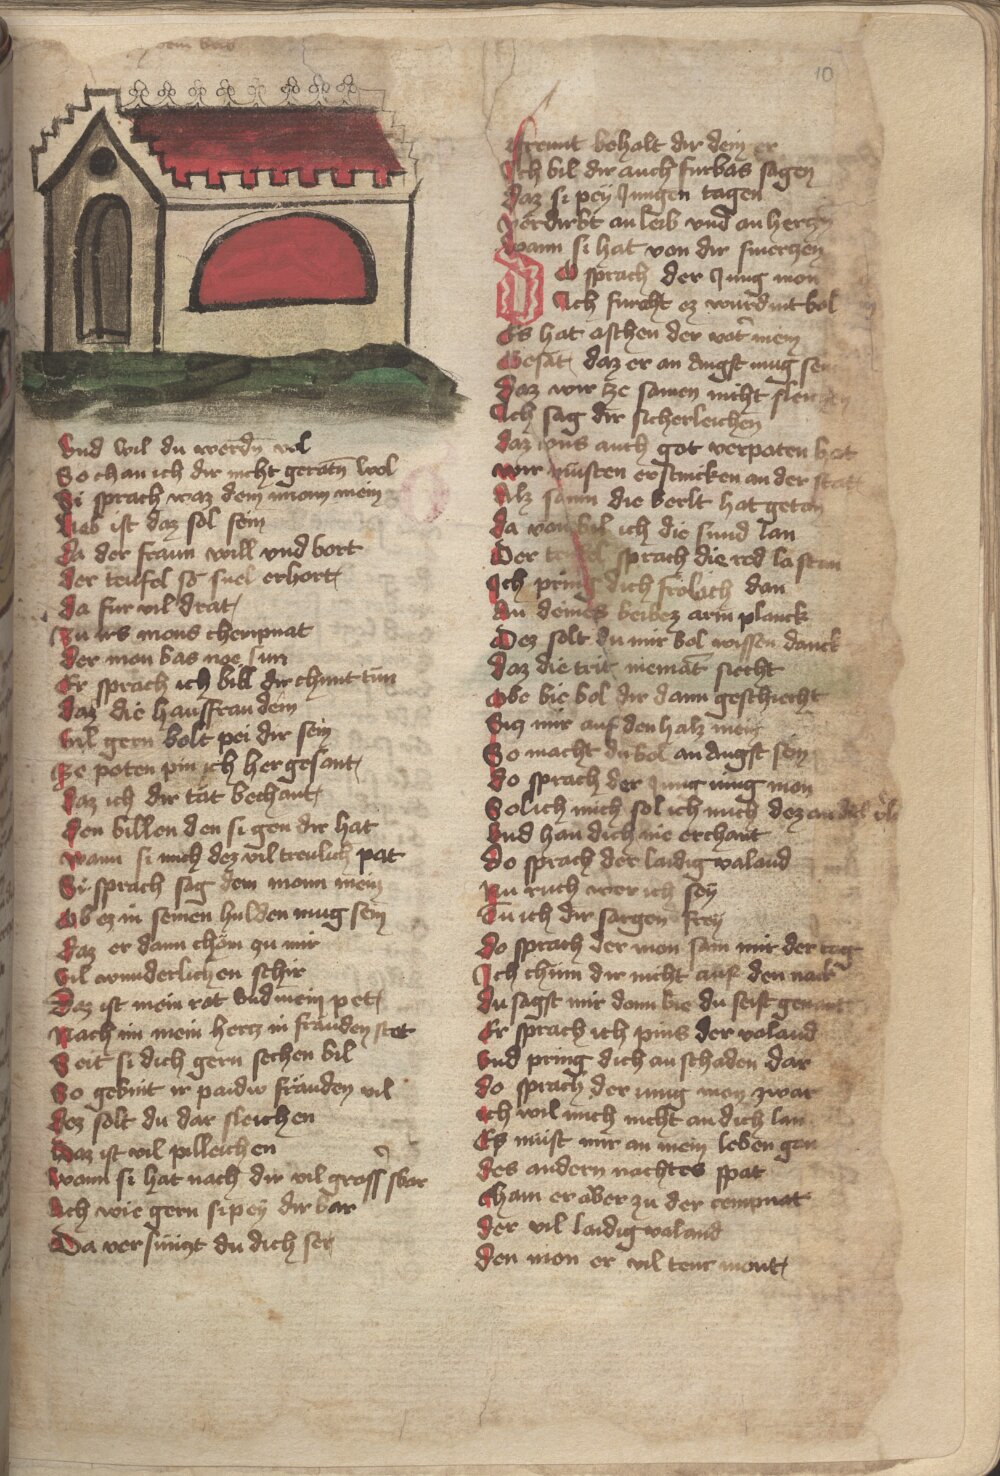 10
Vnd wil du werdn vol
So chan ich dir nicht geratn wol
Si sprach waz dem monn mein
Lieb ist daz sol sein
Da der fraun will vnd bort
der teufel so snel erhort
da fur wil drat
Zu irs mons chempnat
der mon bas noe sun
Er sprach ich bill dir chunt tun
daz die hausfrau dein
vil gern bolt pei dir sein
Ze poten pin ich her gesant
daz ich dir tät bechant
den billen den si gen dir hat
wann si mich dez vil treulich pat
Si sprach sag dem monn mein
Ob ez in seinen hulden mug sein
daz er dann chöm zu mir
vil wunderlichen schir
Daz ist mein rat vnd mein pet
Nach im mein hercz in fräuden stet
Seit si dich gern sechen bil
So gebint ir paidw fräuden vil
dez solt du dar sleichen
Daz ist vil pilleichen
wann si hat nach dir vil gross sbär
Ach wie gern si pey dir bar
Da versunt du dich ser
freunt behalt dir dein er
Ich bil dir auch furbas sagen
daz si pey Jungen tagen
verdirbt an leib vnd an herczn
wann si hat von dir smerczen
Do sprach der Jung mon
Ich furcht ez wurd nit bol
Es hat aschen der vater mein
Gesät daz er an angst mug sein
Daz wir ze samen nicht sleichen
Ich sag dir sicherleichen
daz uns auch got verpoten hat
wir müsten ersticken an der stat
Alz samm die berlt hat getan
da von bil ich die sund lan
Der teufel sprach die red la stan
Ich pring dich frolich dan
An deines beibez arm planck
Dez solt du mir bol wissen danck
daz die trit niemät siecht
Obe bie bol dir dann geschiecht
Sicz mir auf den halz mein
So macht du bol an angst sein
do sprach der Jung mon
Sol ich mich sol ich mich dez an dich
Vnd han dich nie erchant
Do sprach der laidig valand
Nu ruch wer ich sey
Tu ich dir sargen frey
do sprach der mon sam mir der tag
Ich chum dir nicht auf den nack
du sagst mir denn bie du seist genant
Er sprach ich pins der valand
Vnd pring dich an schaden dar
do sprach der jung mon zwar
Ich wil mich nicht an dich lan
Es müst mir an mein leben gan
des andern nachtes spat
Cham er aber zu der cempnat
der vil laidig valand
den mon er vil teur mont